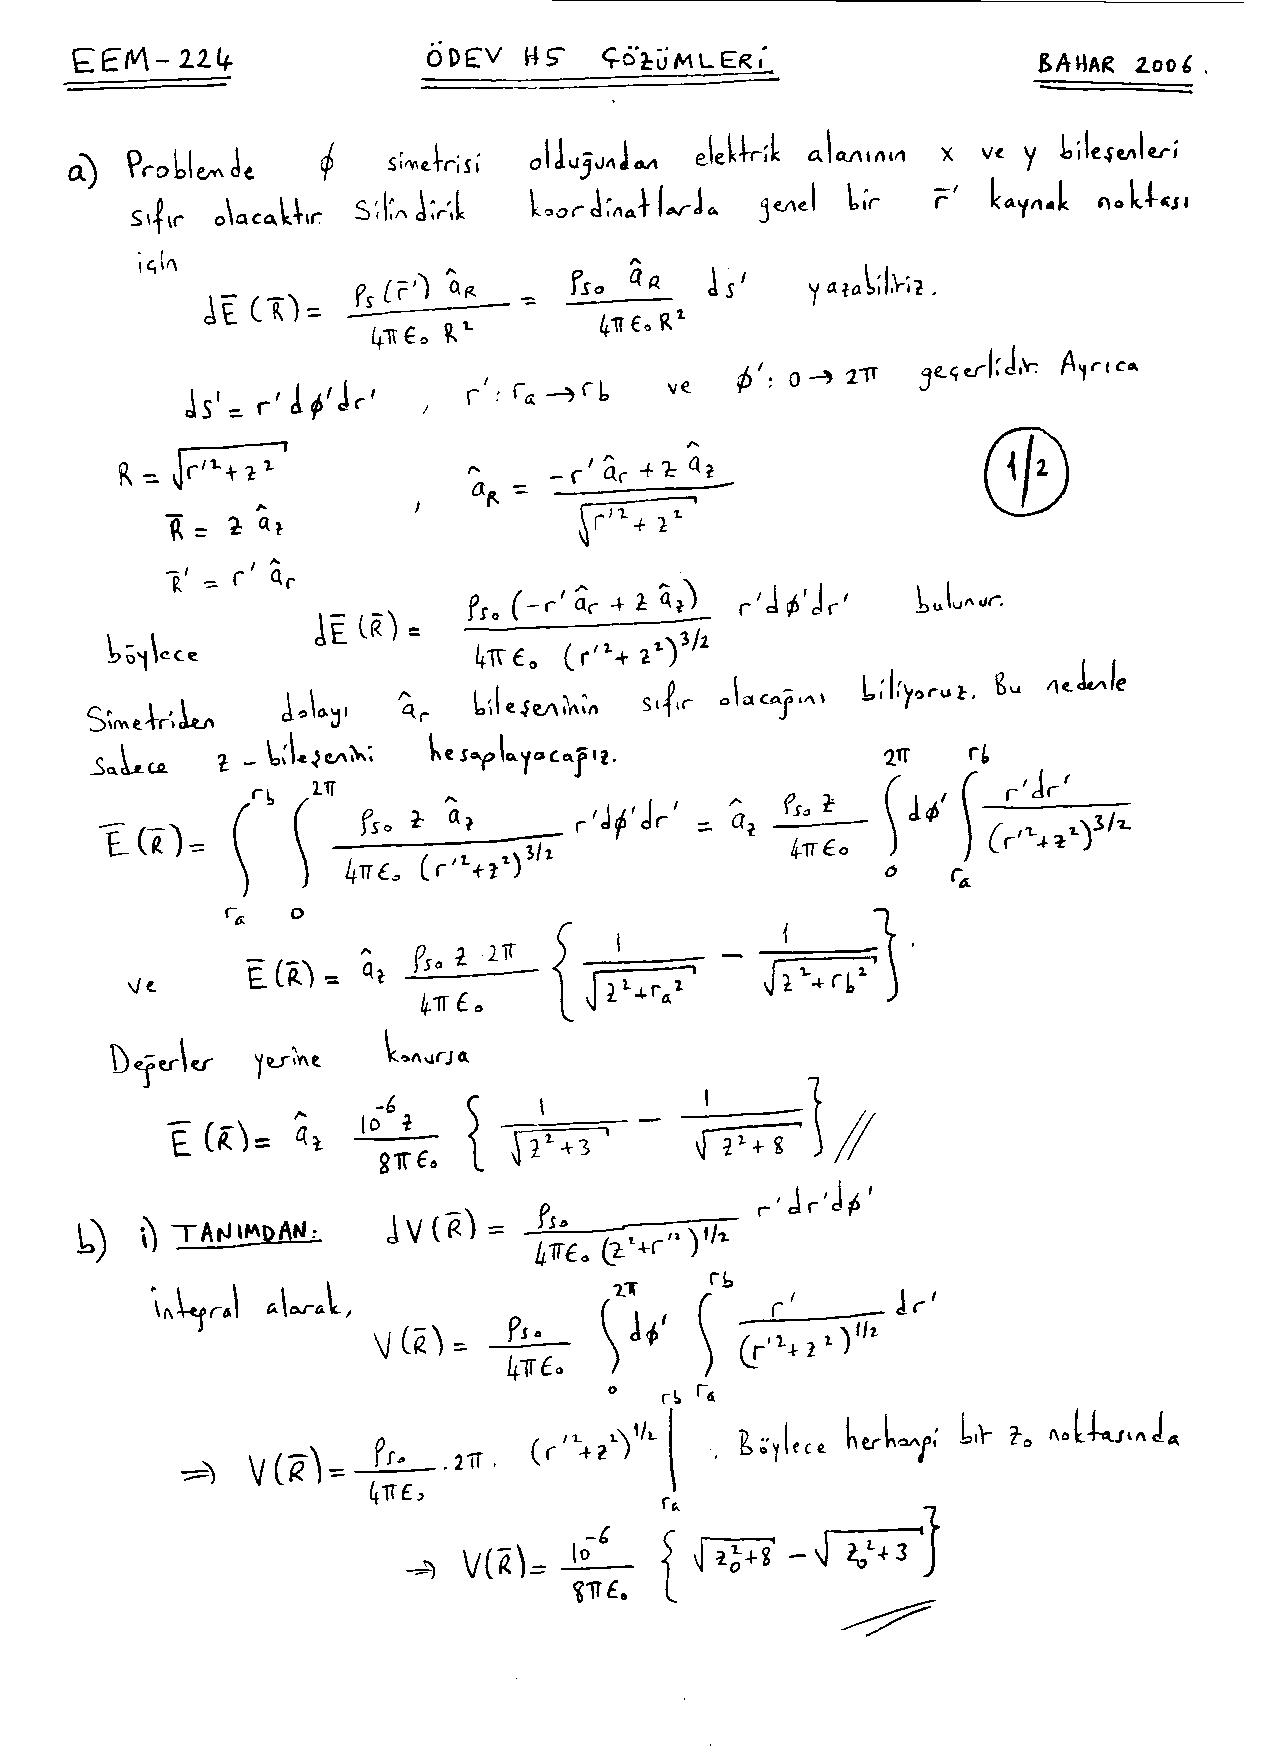 EEM-224 ÖDEV H5 ÇÖZÜMLERİ BAHAR 2006.
a) Problemde φ simetrisi olduğundan elektrik alanının x ve y bileşenleri
sıfır olacaktır. Silindirik koordinatlarda genel bir r̄' kaynak noktası
için
dĒ(R̄) = ρs(r̄') âR / 4πε₀ R² = ρs₀ âR / 4πε₀R² ds' yazabiliriz.
ds' = r'dφ'dr' , r': ra → rb ve φ': 0 → 2π geçerlidir. Ayrıca
R = √(r'² + z²) , âR = (-r' âr + z âz) / √(r'² + z²) 1/2
R̄ = z âz
R̄' = r' âr
böylece dĒ(R̄) = ρs₀ (-r' âr + z âz) / 4πε₀ (r'² + z²)^3/2 r'dφ'dr' bulunur.
Simetriden dolayı âr bileşeninin sıfır olacağını biliyoruz. Bu nedenle
sadece z - bileşenini hesaplayacağız.
Ē(R̄) = ∫ra^rb ∫0^2π ρs₀ z âz / 4πε₀ (r'²+z²)^3/2 r'dφ'dr' = âz ρs₀ z / 4πε₀ ∫0^2π dφ' ∫ra^rb r'dr' / (r'²+z²)^3/2
ve Ē(R̄) = âz ρs₀ z · 2π / 4πε₀ { 1/√(z²+ra²) - 1/√(z²+rb²) }.
Değerler yerine konursa
Ē(R̄) = âz 10^-6 z / 8πε₀ { 1/√(z²+3) - 1/√(z²+8) } //
b) i) TANIMDAN: dV(R̄) = ρs₀ / 4πε₀ (z²+r'²)^1/2 r'dr'dφ'
integral alarak,
V(R̄) = ρs₀ / 4πε₀ ∫0^2π dφ' ∫ra^rb r' / (r'²+z²)^1/2 dr'
⇒ V(R̄) = ρs₀ / 4πε₀ . 2π . (r'²+z²)^1/2 |ra^rb . Böylece herhangi bir z₀ noktasında
⇒ V(R̄) = 10^-6 / 8πε₀ { √(z₀²+8) - √(z₀²+3) } //